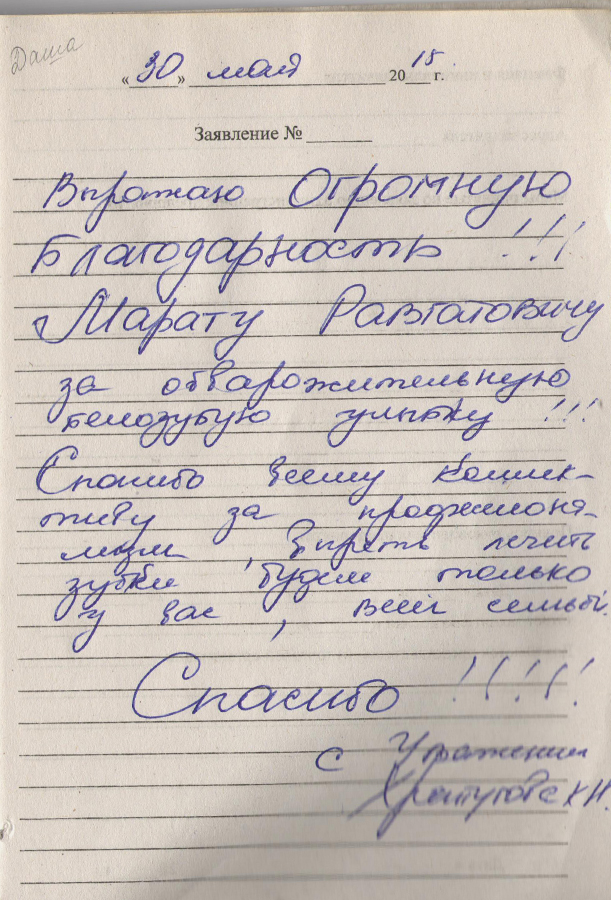 Даша
«30» мая 2015 г.
Заявление №
Выражаю Огромную
Благодарность !!!
Марату
за обварожительную
белозубую улыбку !!!
Спасибо всему коллек-
тиву за профессиона-
лизм, Впредь лечить
зубки будем только
у вас, всей семьёй.
Спасибо !!!!!
с Уважением